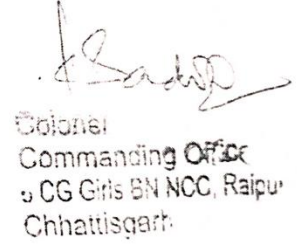 Colonel
Commanding Officer
CG Girls BN NCC, Raipur
Chhattisgarh